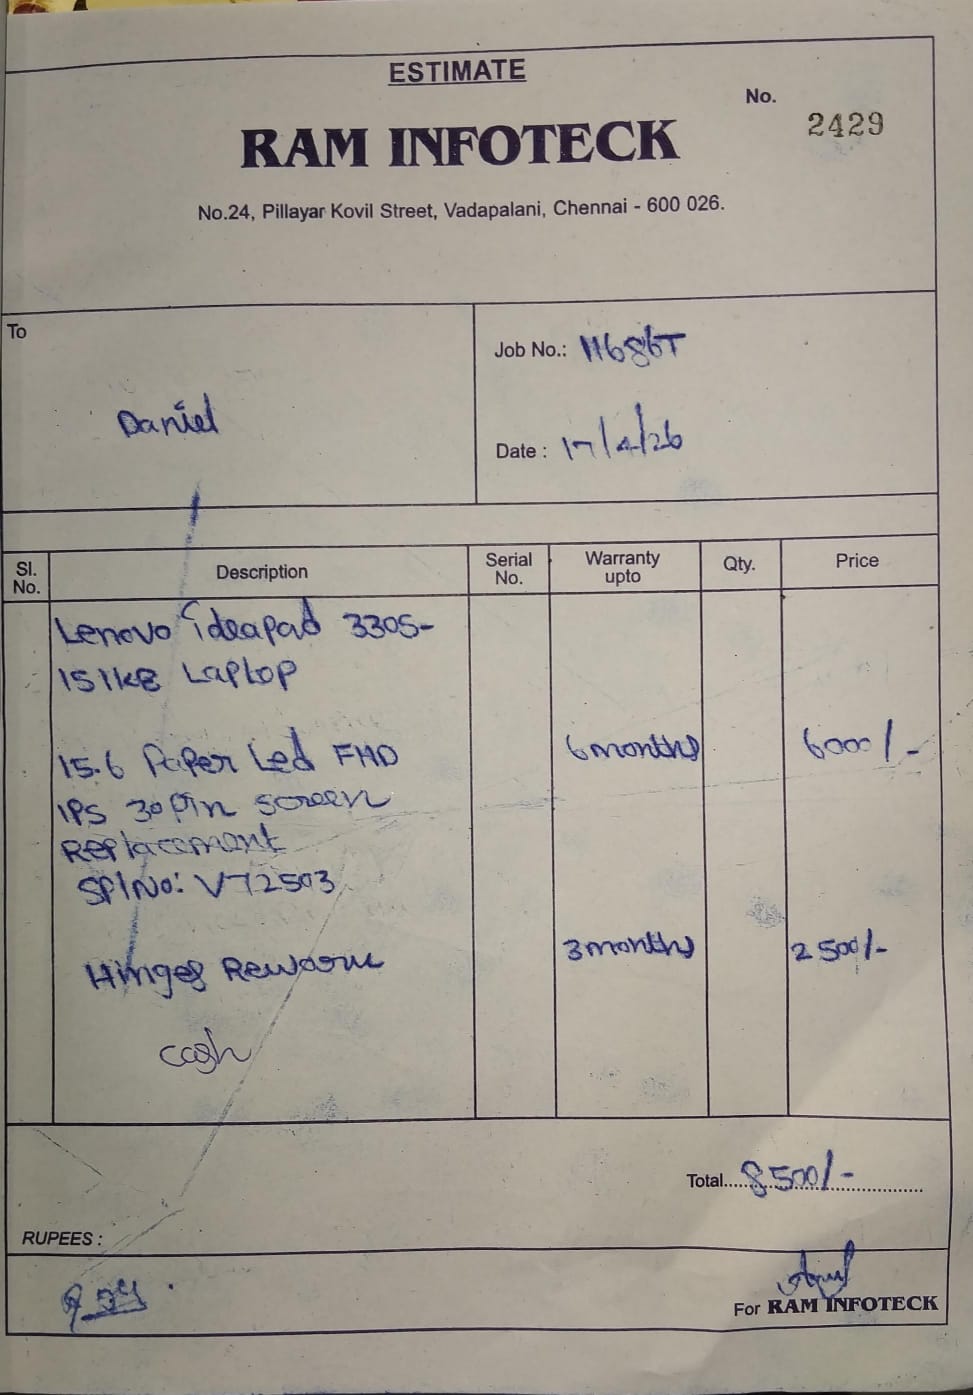 ESTIMATE
No.
2429
RAM INFOTECK
No.24, Pillayar Kovil Street, Vadapalani, Chennai - 600 026.
To
Daniel
Job No.: 11686T
Date : 17/4/26
Sl. No. Description Serial No. Warranty upto Qty. Price
Lenovo ideapad 330S-
15IKB Laptop
15.6 Paper Led FHD 6 months 6000/-
IPS 30 pin screen
Replacement
SP/No: V72503
Hinges Rework 3 months 2500/-
cash
Total 8500/-
RUPEES :
For RAM INFOTECK